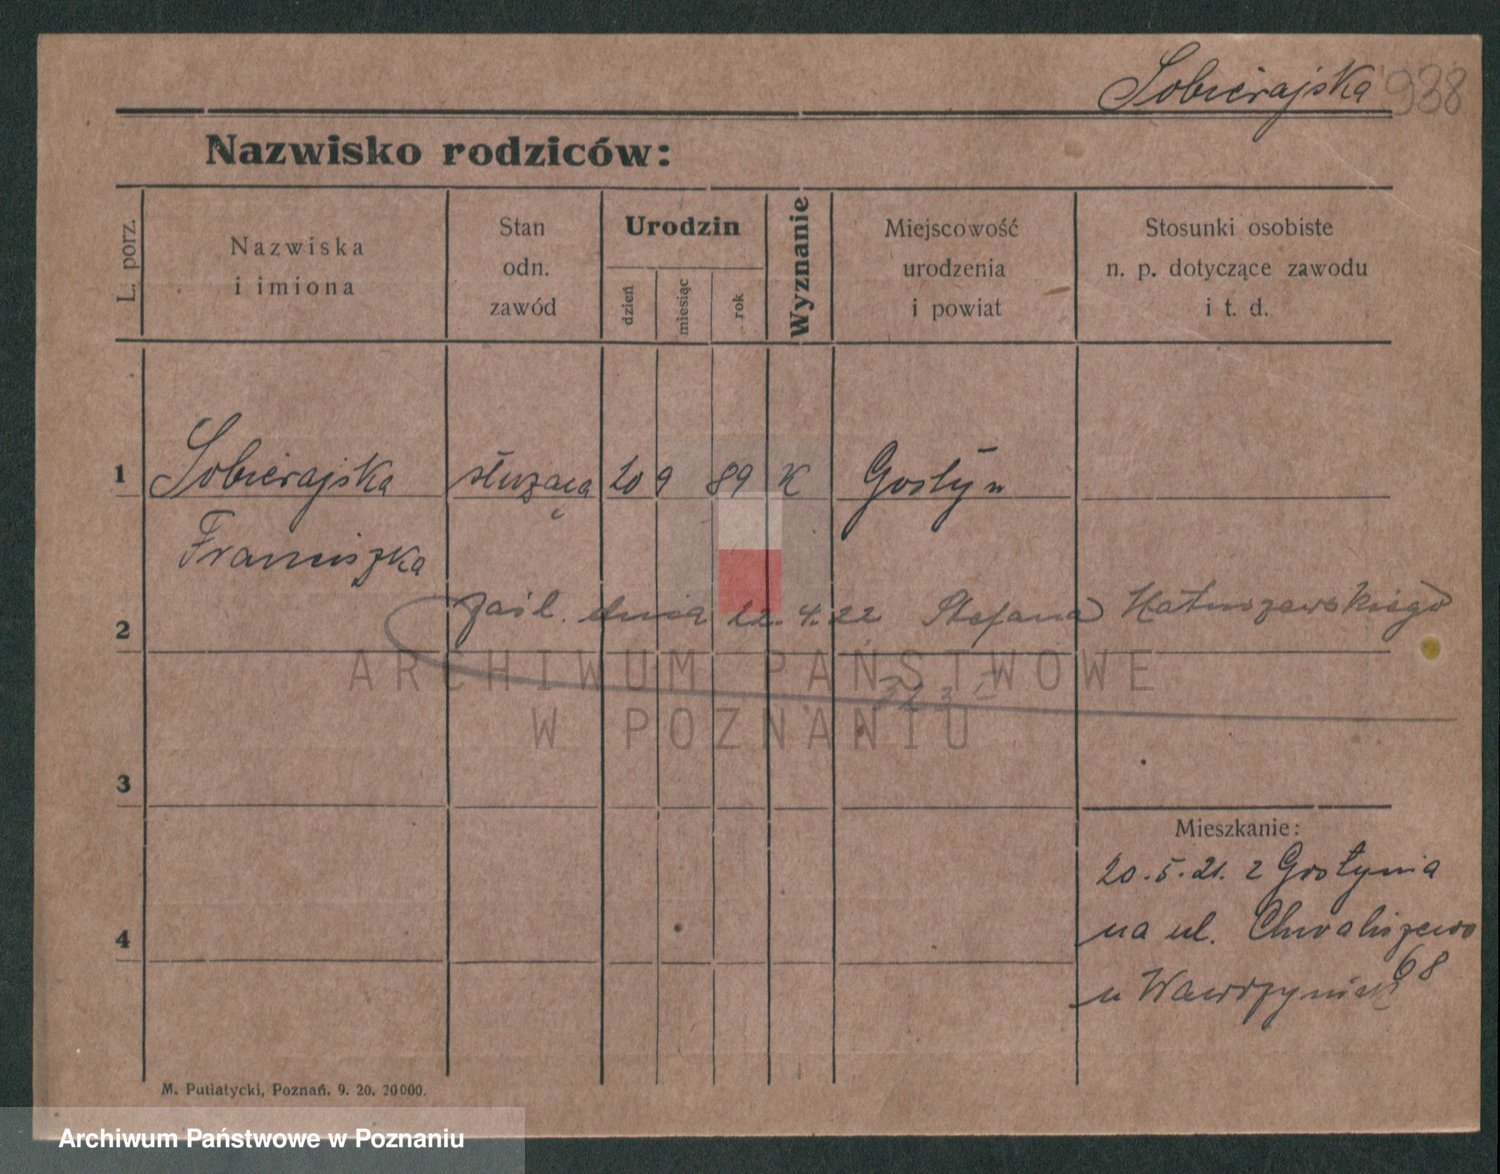 Sobierajska 938
Nazwisko rodziców:
L. porz.
Nazwiska
i imiona
Stan
odn.
zawód
Urodzin
dzień
miesiąc
rok
Wyznanie
Miejscowość
urodzenia
i powiat
Stosunki osobiste
n. p. dotyczące zawodu
i t. d.
1 Sobierajska służąca 20 9 89 K Gostyń
Franciszka
2 zaśl. dnia 22. 4. 22 Stefana Matuszewskiego
ARCHIWUM PAŃSTWOWE
W POZNANIU
3
Mieszkanie:
20. 5. 21. z Gostynia
na ul. Chwaliszewo
68
4
u Wawrzyniak
M. Putiatycki, Poznań. 9. 20. 20000.
Archiwum Państwowe w Poznaniu